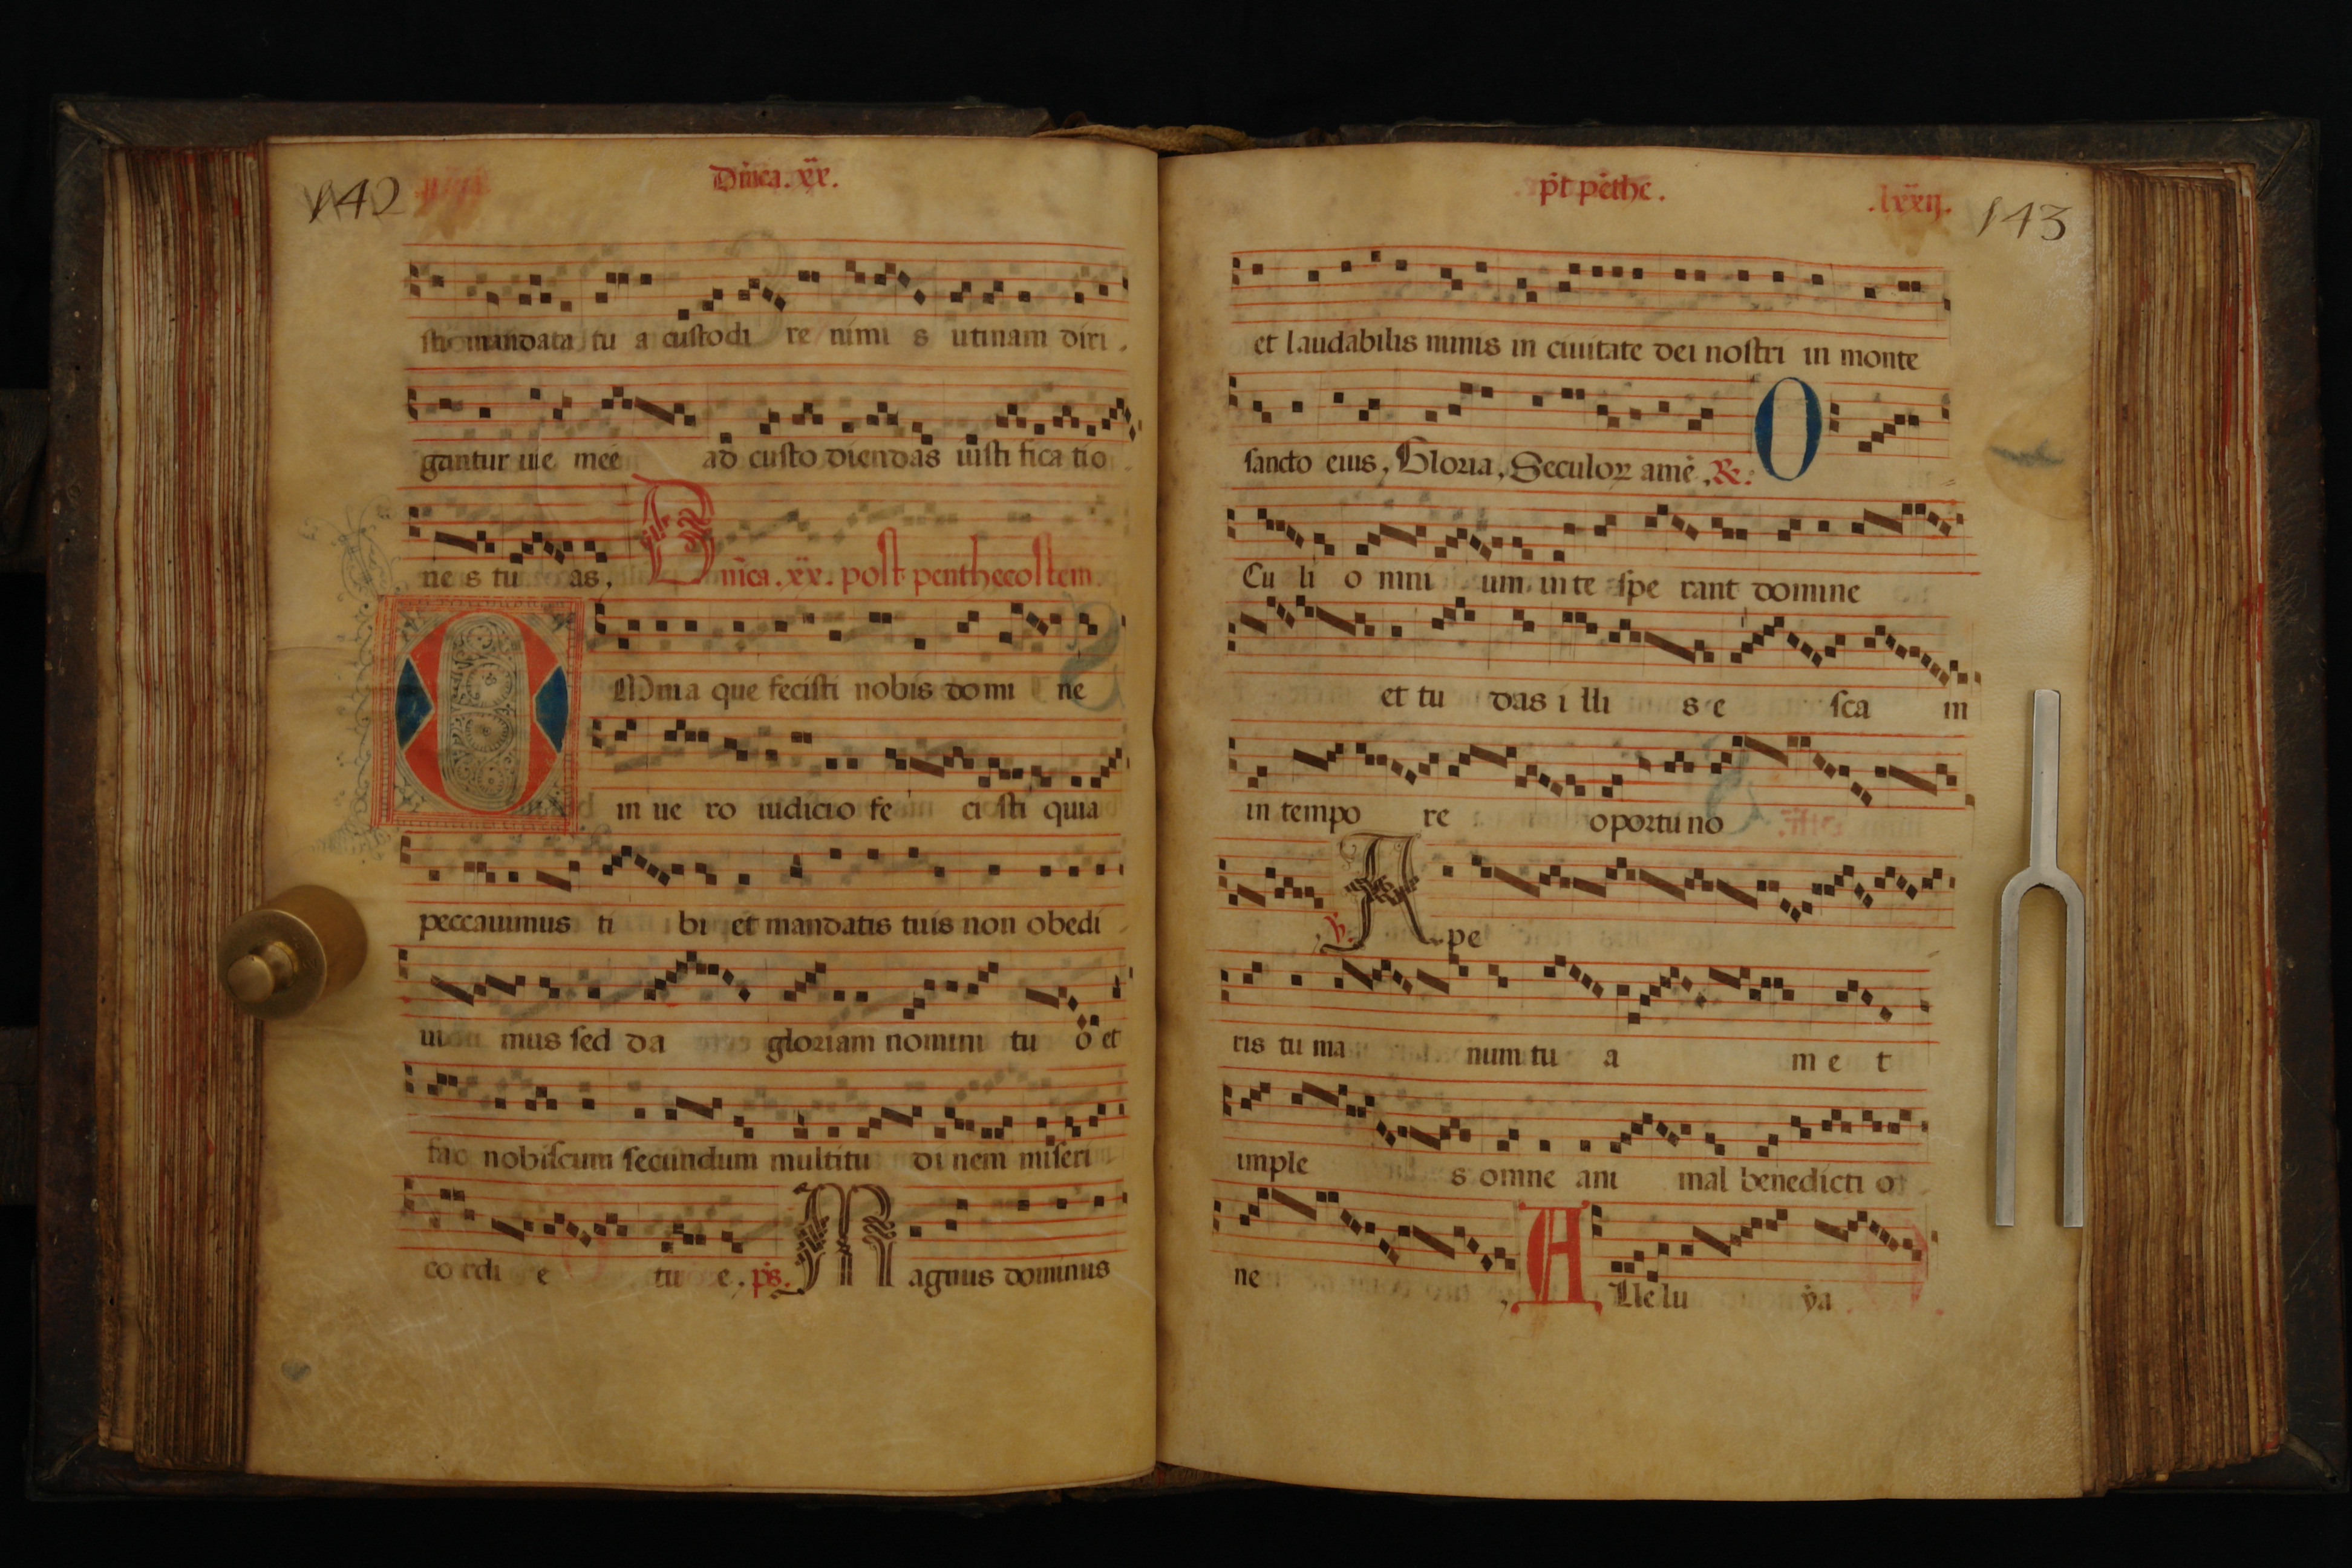 142
Dñica. xx.
sti mandata tu a custodi re nimi s utinam diri
gantur uie mee ad custo diendas iusti fica tio
ne s tu as,
Dñica. xx. post penthecostem
OMnia que fecisti nobis domi ne
in ue ro iudicio fe ci sti quia
peccauimus ti bi et mandatis tuis non obedi
ui mus sed da gloriam nomini tu o et
fac nobiscum secundum multitu di nem miseri
co rdi e tu e, ps. Magnus dominus
pt pethe.
.lxxij.
143
et laudabilis nimis in ciuitate dei nostri in monte
sancto eius, Gloria, Seculoꝝ amē, R. O
Cu li o mni um in te spe rant domine
et tu das i lli s e sca m
in tempo re oportuno
℣. Ape
ris tu ma num tu a m e t
imple s omne ani mal benedicti o
ne , Alle lu ya